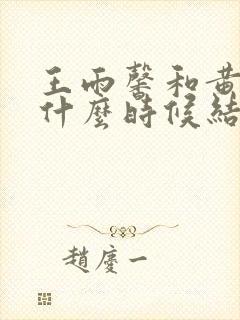 王雨馨和黃
什麼時候結
趙慶一